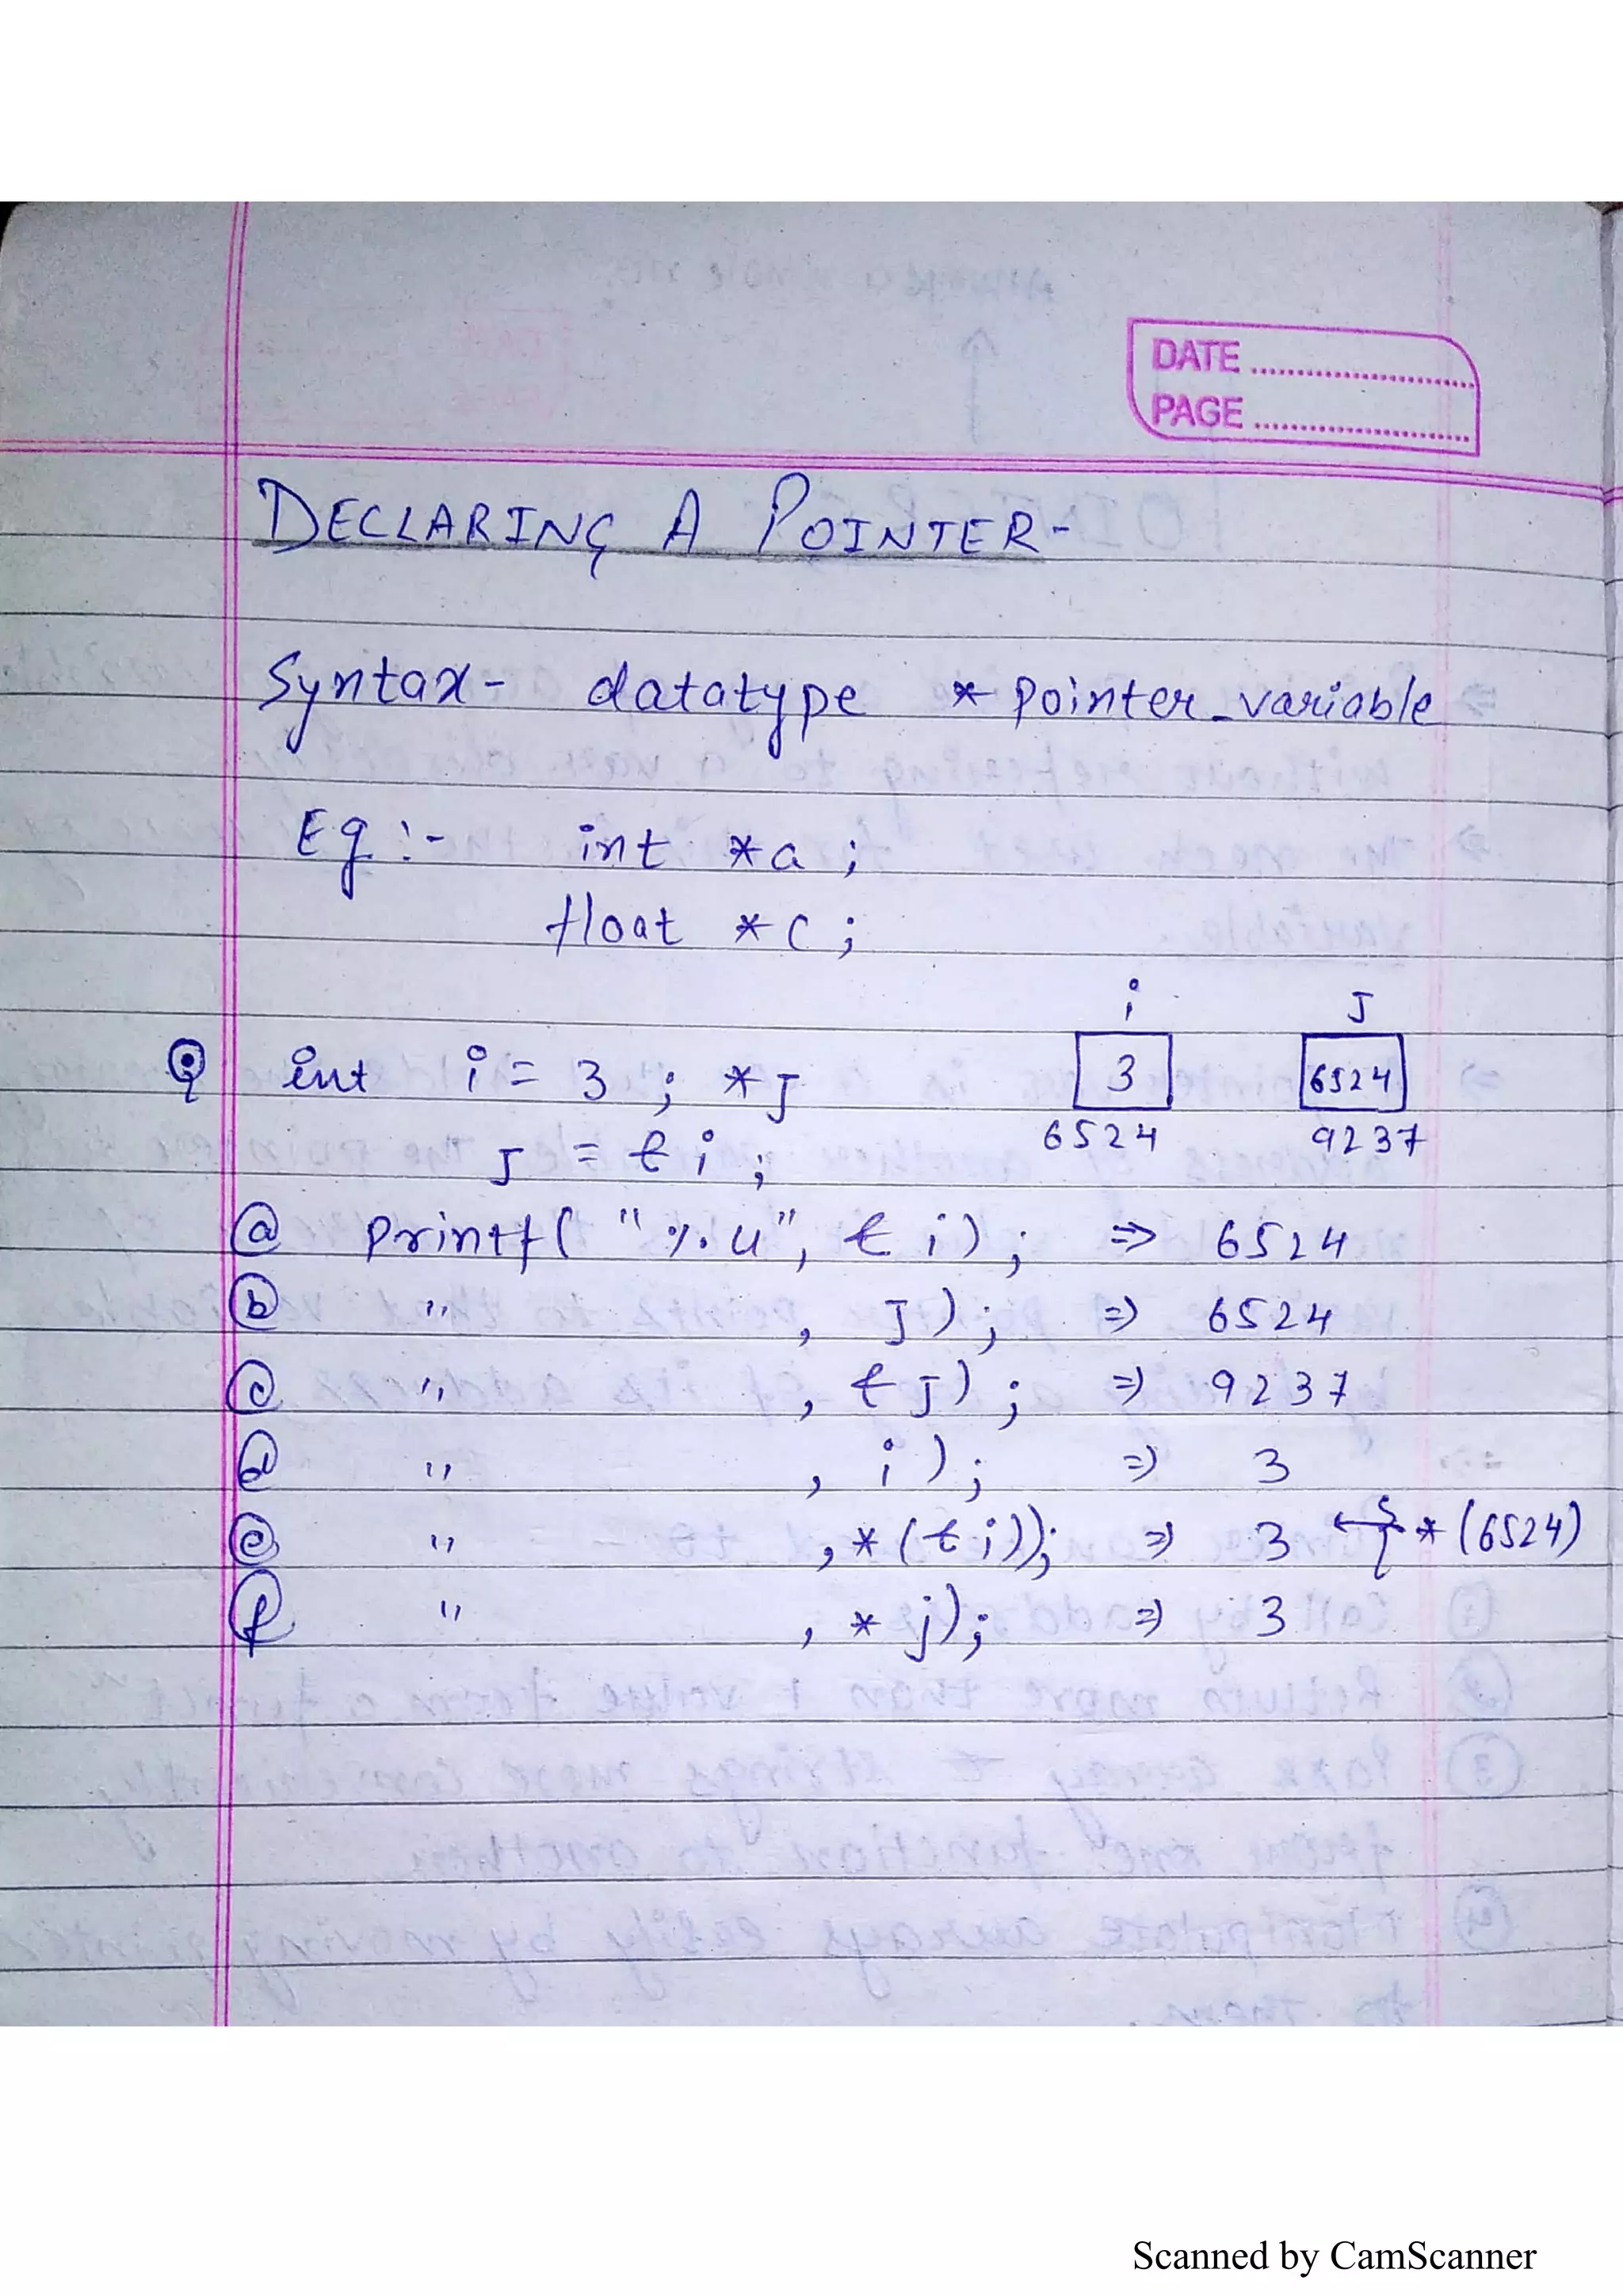 DATE
PAGE
DECLARING A POINTER-
Syntax- datatype * pointer_variable
Eg:- int *a ;
float *c ;
i J
Q int i = 3 ; *J 3 6524
6524 9237
J = &i ;
(a) printf( "%u", & i) ; => 6524
(b) " , J) ; => 6524
(c) " , & J) ; => 9237
(d) " , i ) ; => 3
(e) " , *(& i)); => 3 ← } *(6524)
(f) " , * j); => 3
Scanned by CamScanner